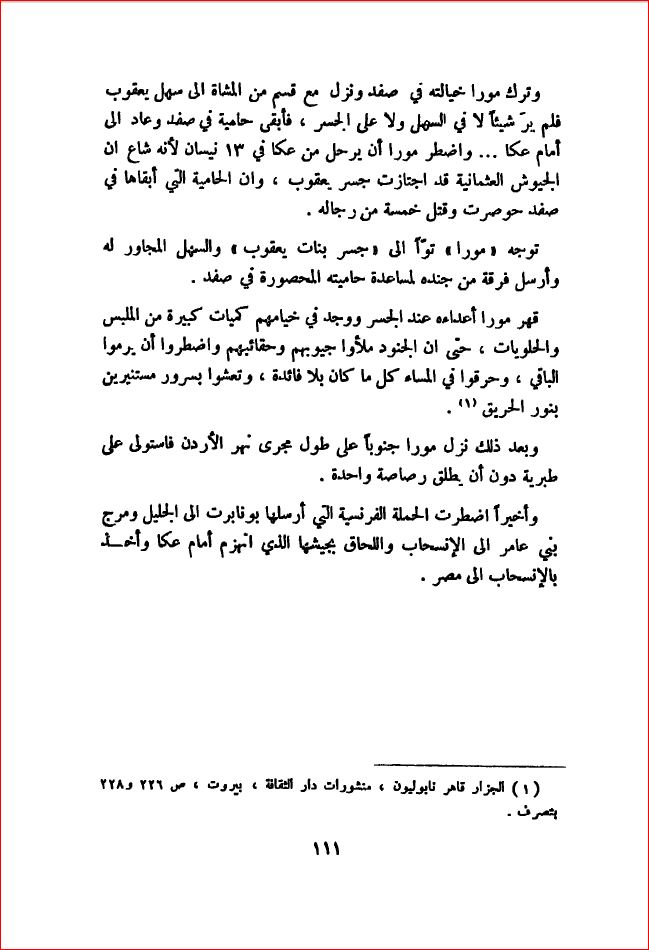 وترك مورا خيالته في صفد ونزل مع قسم من المشاة الى سهل يعقوب
فلم يرَ شيئاً لا في السهل ولا على الجسر ، فأبقى حامية في صفد وعاد الى
أمام عكا ... واضطر مورا أن يرحل من عكا في ١٣ نيسان لأنه شاع ان
الجيوش العثمانية قد اجتازت جسر يعقوب ، وان الحامية التي أبقاها في
صفد حوصرت وقتل خمسة من رجاله .
توجه «مورا» توّاً الى «جسر بنات يعقوب» والسهل المجاور له
وأرسل فرقة من جنده لمساعدة حاميته المحصورة في صفد .
قهر مورا أعداءه عند الجسر ووجد في خيامهم كميات كبيرة من الملبس
والحلويات ، حتّى ان الجنود ملأوا جيوبهم وحقائبهم واضطروا أن يرموا
الباقي ، وحرقوا في المساء كل ما كان بلا فائدة ، وتعشوا بسرور مستنيرين
بنور الحريق (١) .
وبعد ذلك نزل مورا جنوباً على طول مجرى نهر الأردن فاستولى على
طبرية دون أن يطلق رصاصة واحدة .
وأخيراً اضطرت الحملة الفرنسية التي أرسلها بونابرت الى الجليل ومرج
بني عامر الى الإنسحاب واللحاق بجيشها الذي انهزم أمام عكا وأخـــذ
بالإنسحاب الى مصر .
(١) الجزار قاهر نابوليون ، منشورات دار الثقافة ، بيروت ، ص ٢٢٦ و٢٢٨
بتصرف .
١١١